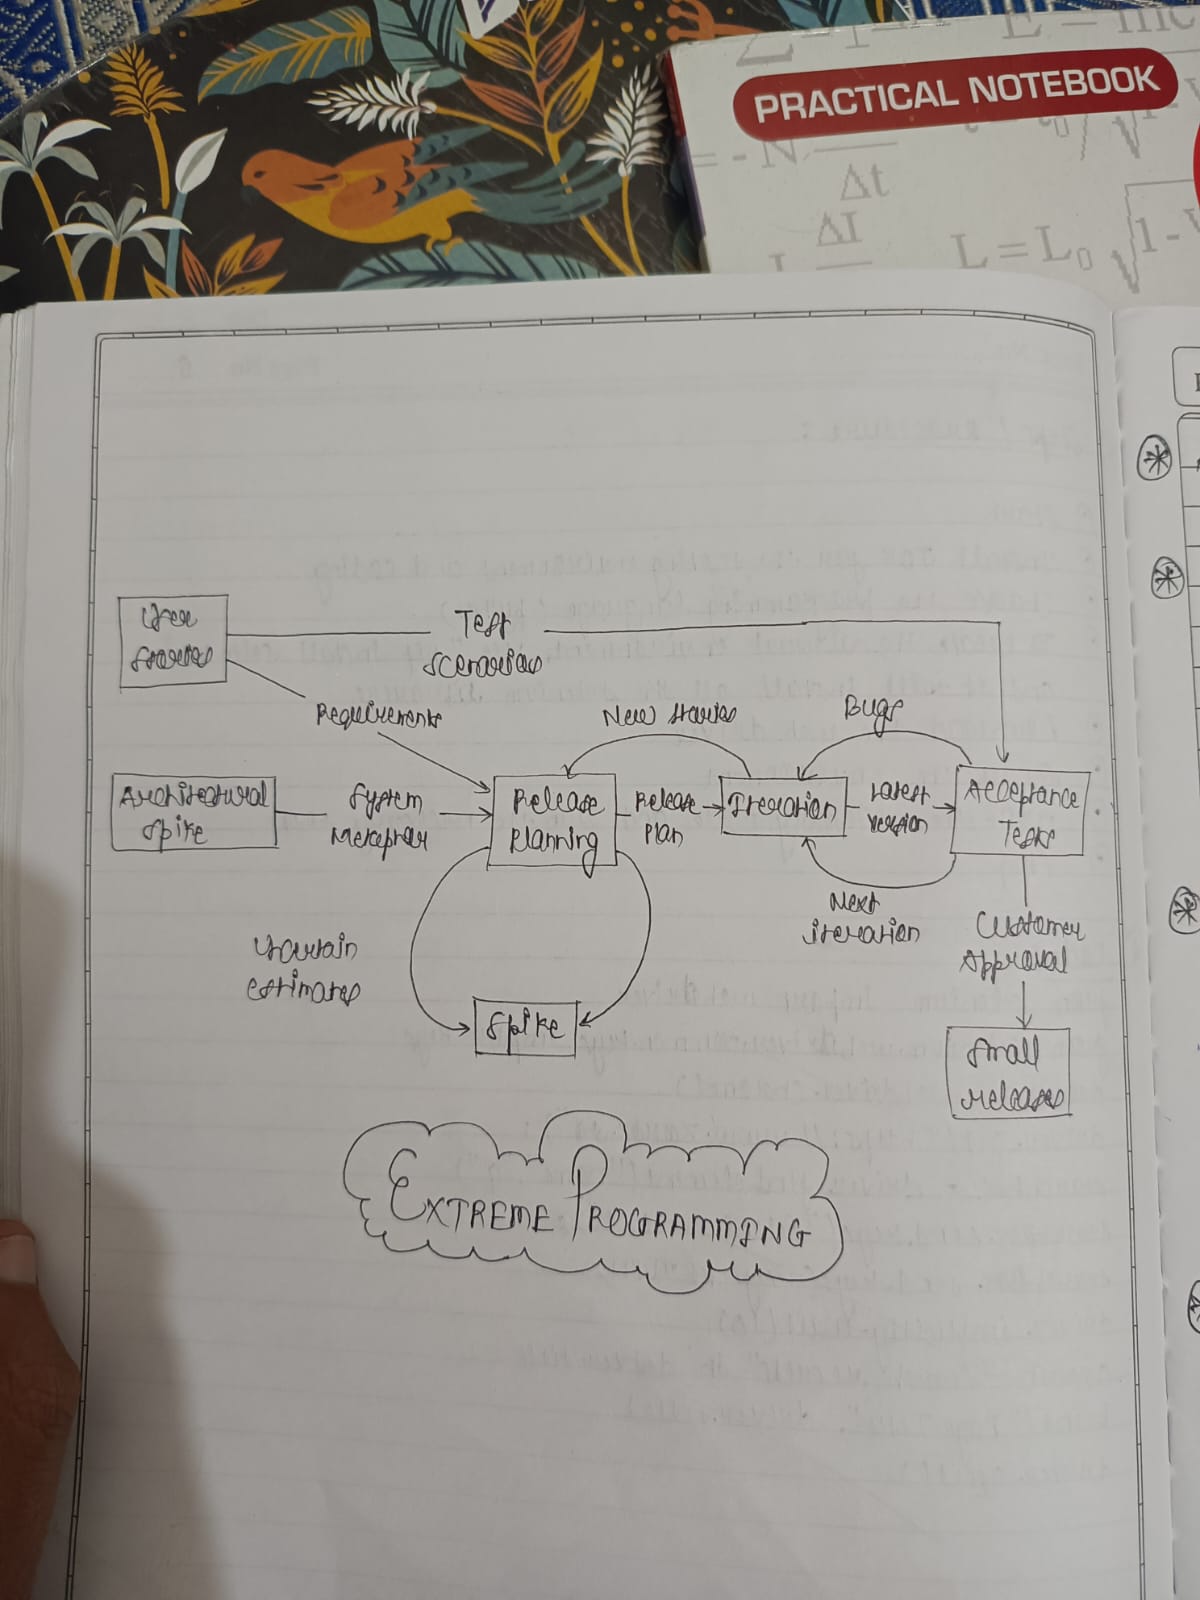 PRACTICAL NOTEBOOK
Δt
ΔI
L = L₀ √1-
User
stories
Test
scenarios
Requirements
New stories
Bugs
Architectural
spike
System
Metaphor
Release
planning
Release
plan
Iteration
Latest
version
Acceptance
Tests
Next
iteration
Customer
Approval
Uncertain
estimates
Spike
Small
releases
EXTREME PROGRAMMING